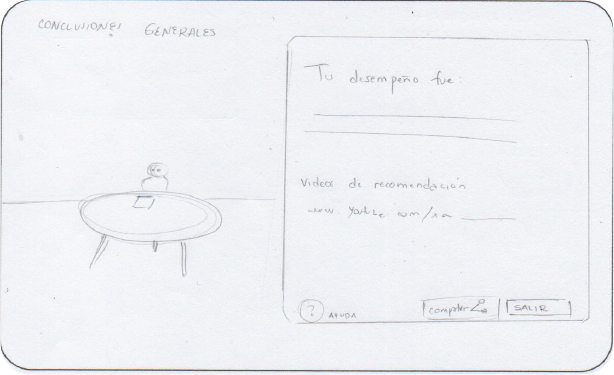 CONCLUSIONES GENERALES
Tu desempeño fue:
Videos de recomendación
www. Youtube com/
? AYUDA
SALIR